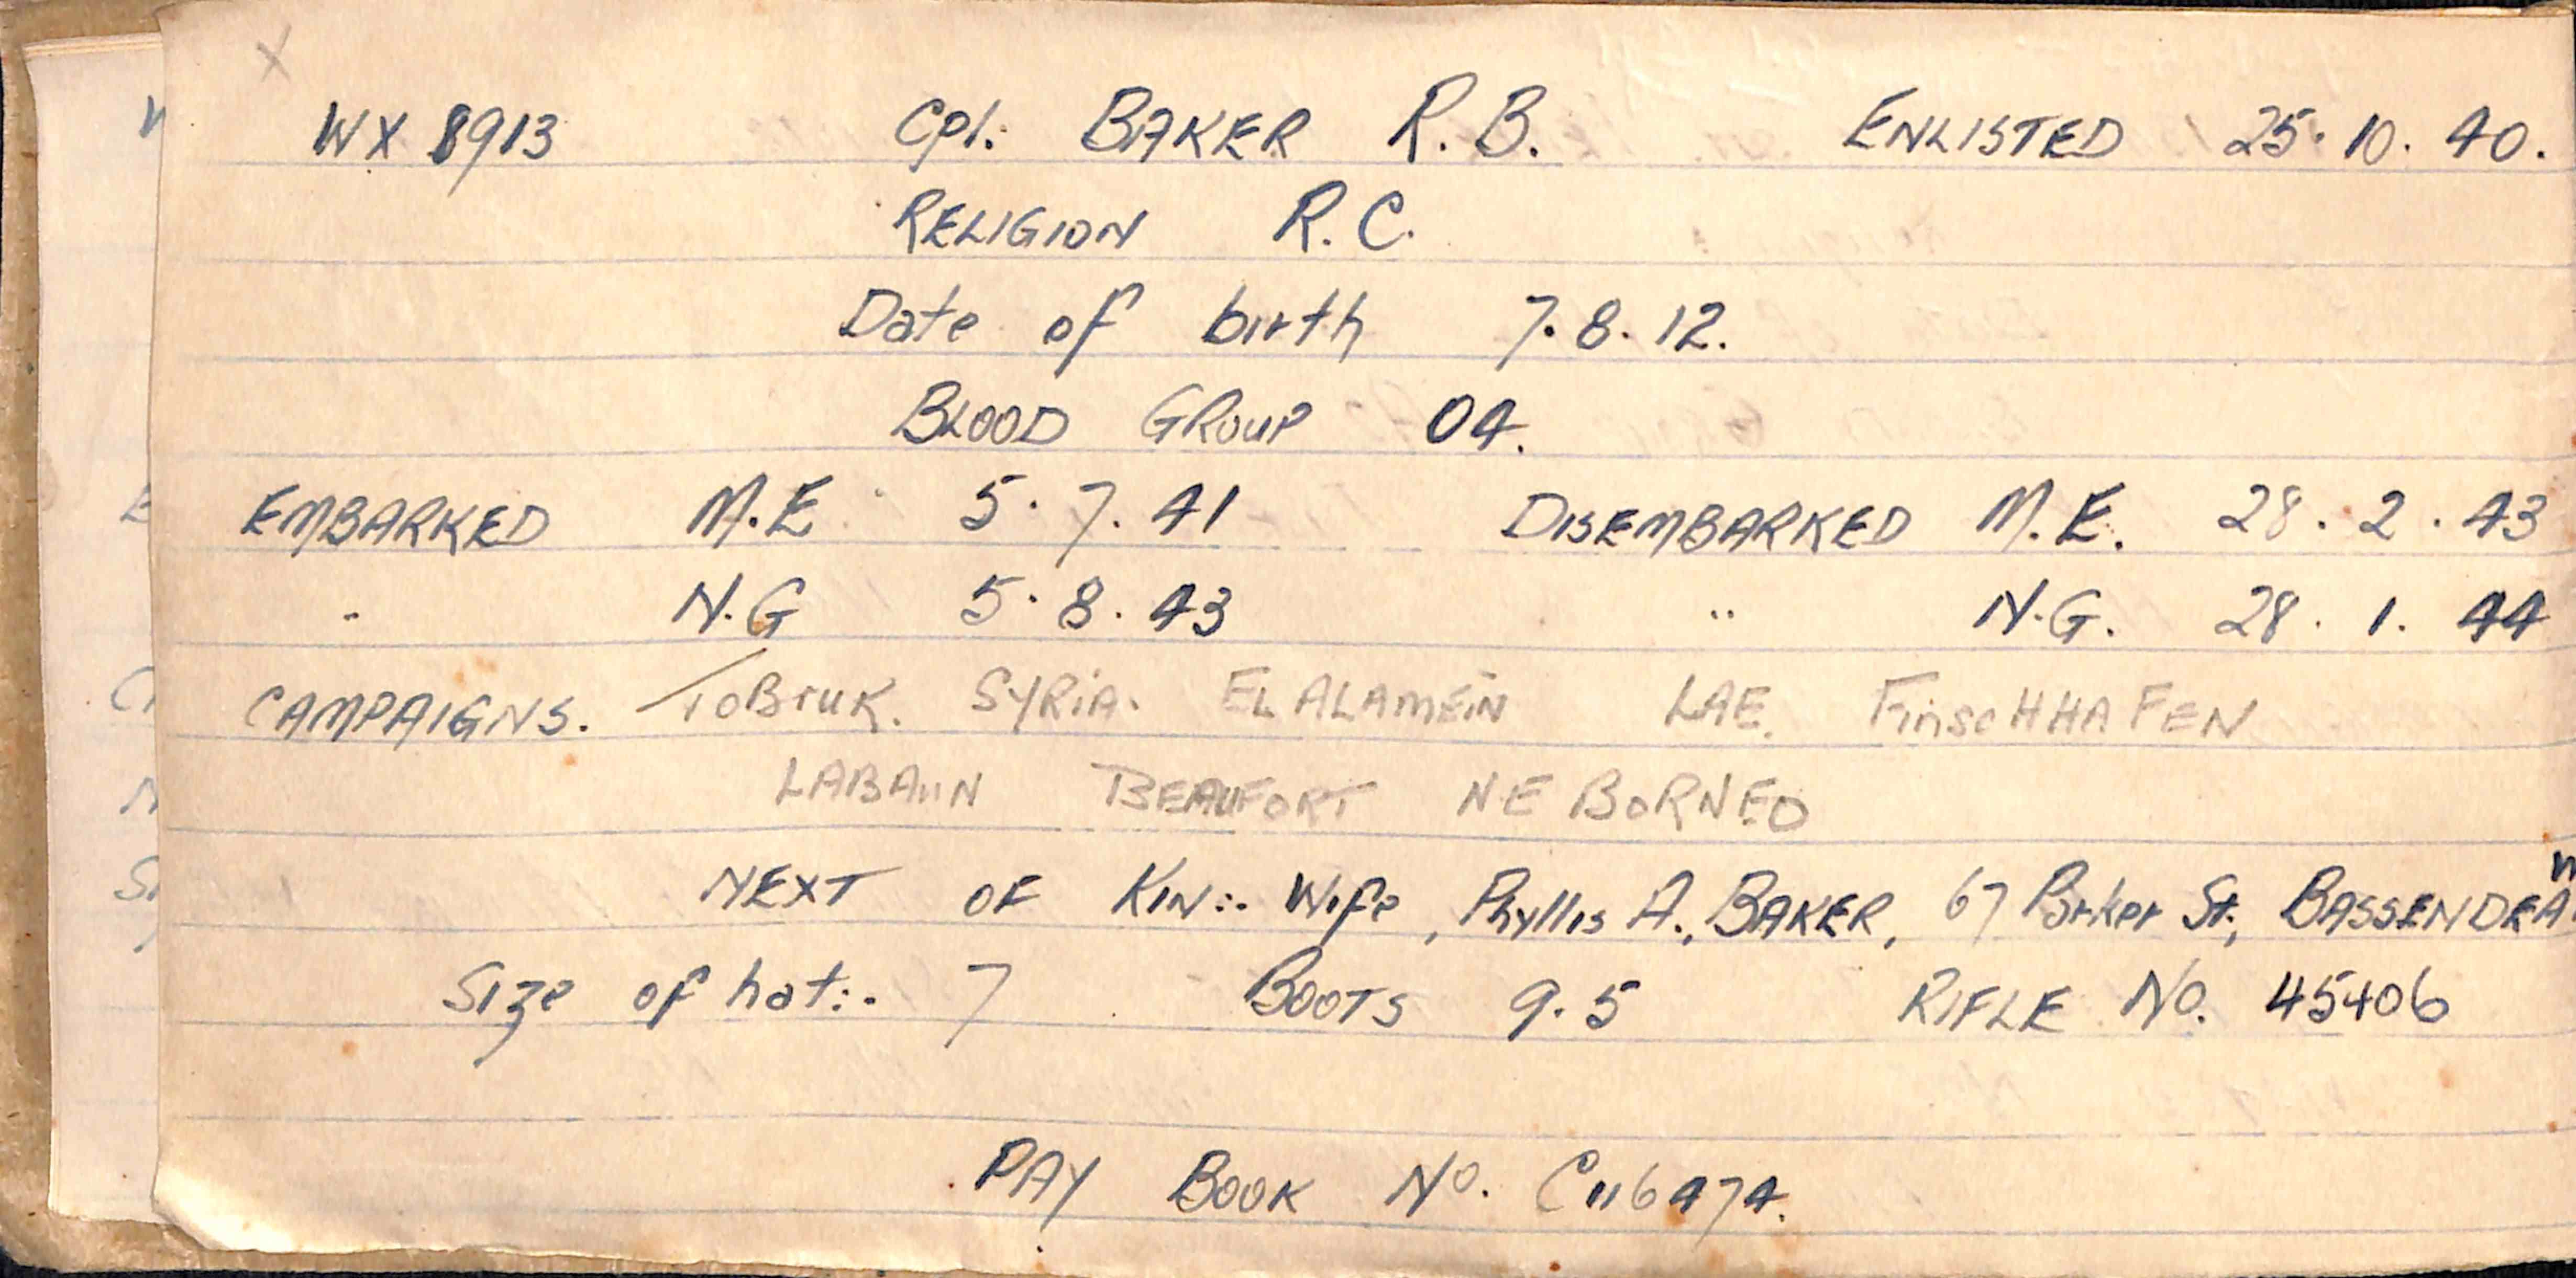 X
WX 8913 Cpl. BAKER R.B. ENLISTED 25.10.40.
RELIGION R.C.
Date of birth 7.8.12.
BLOOD GROUP O4.
EMBARKED M.E 5.7.41 DISEMBARKED M.E. 28.2.43
" N.G 5.8.43 " N.G. 28.1.44
CAMPAIGNS. TOBrUK. SYRiA. EL ALAMEiN LAE. FinscHHAFEN
LABAuN BEAUFORT NE BORNEO
NEXT OF KIN:. Wife, Phyllis A., BAKER, 67 Parker St., BASSENDEAN
Size of hat:. 7 BOOTS 9.5 RIFLE No. 45406
PAY BOOK No. C116474.